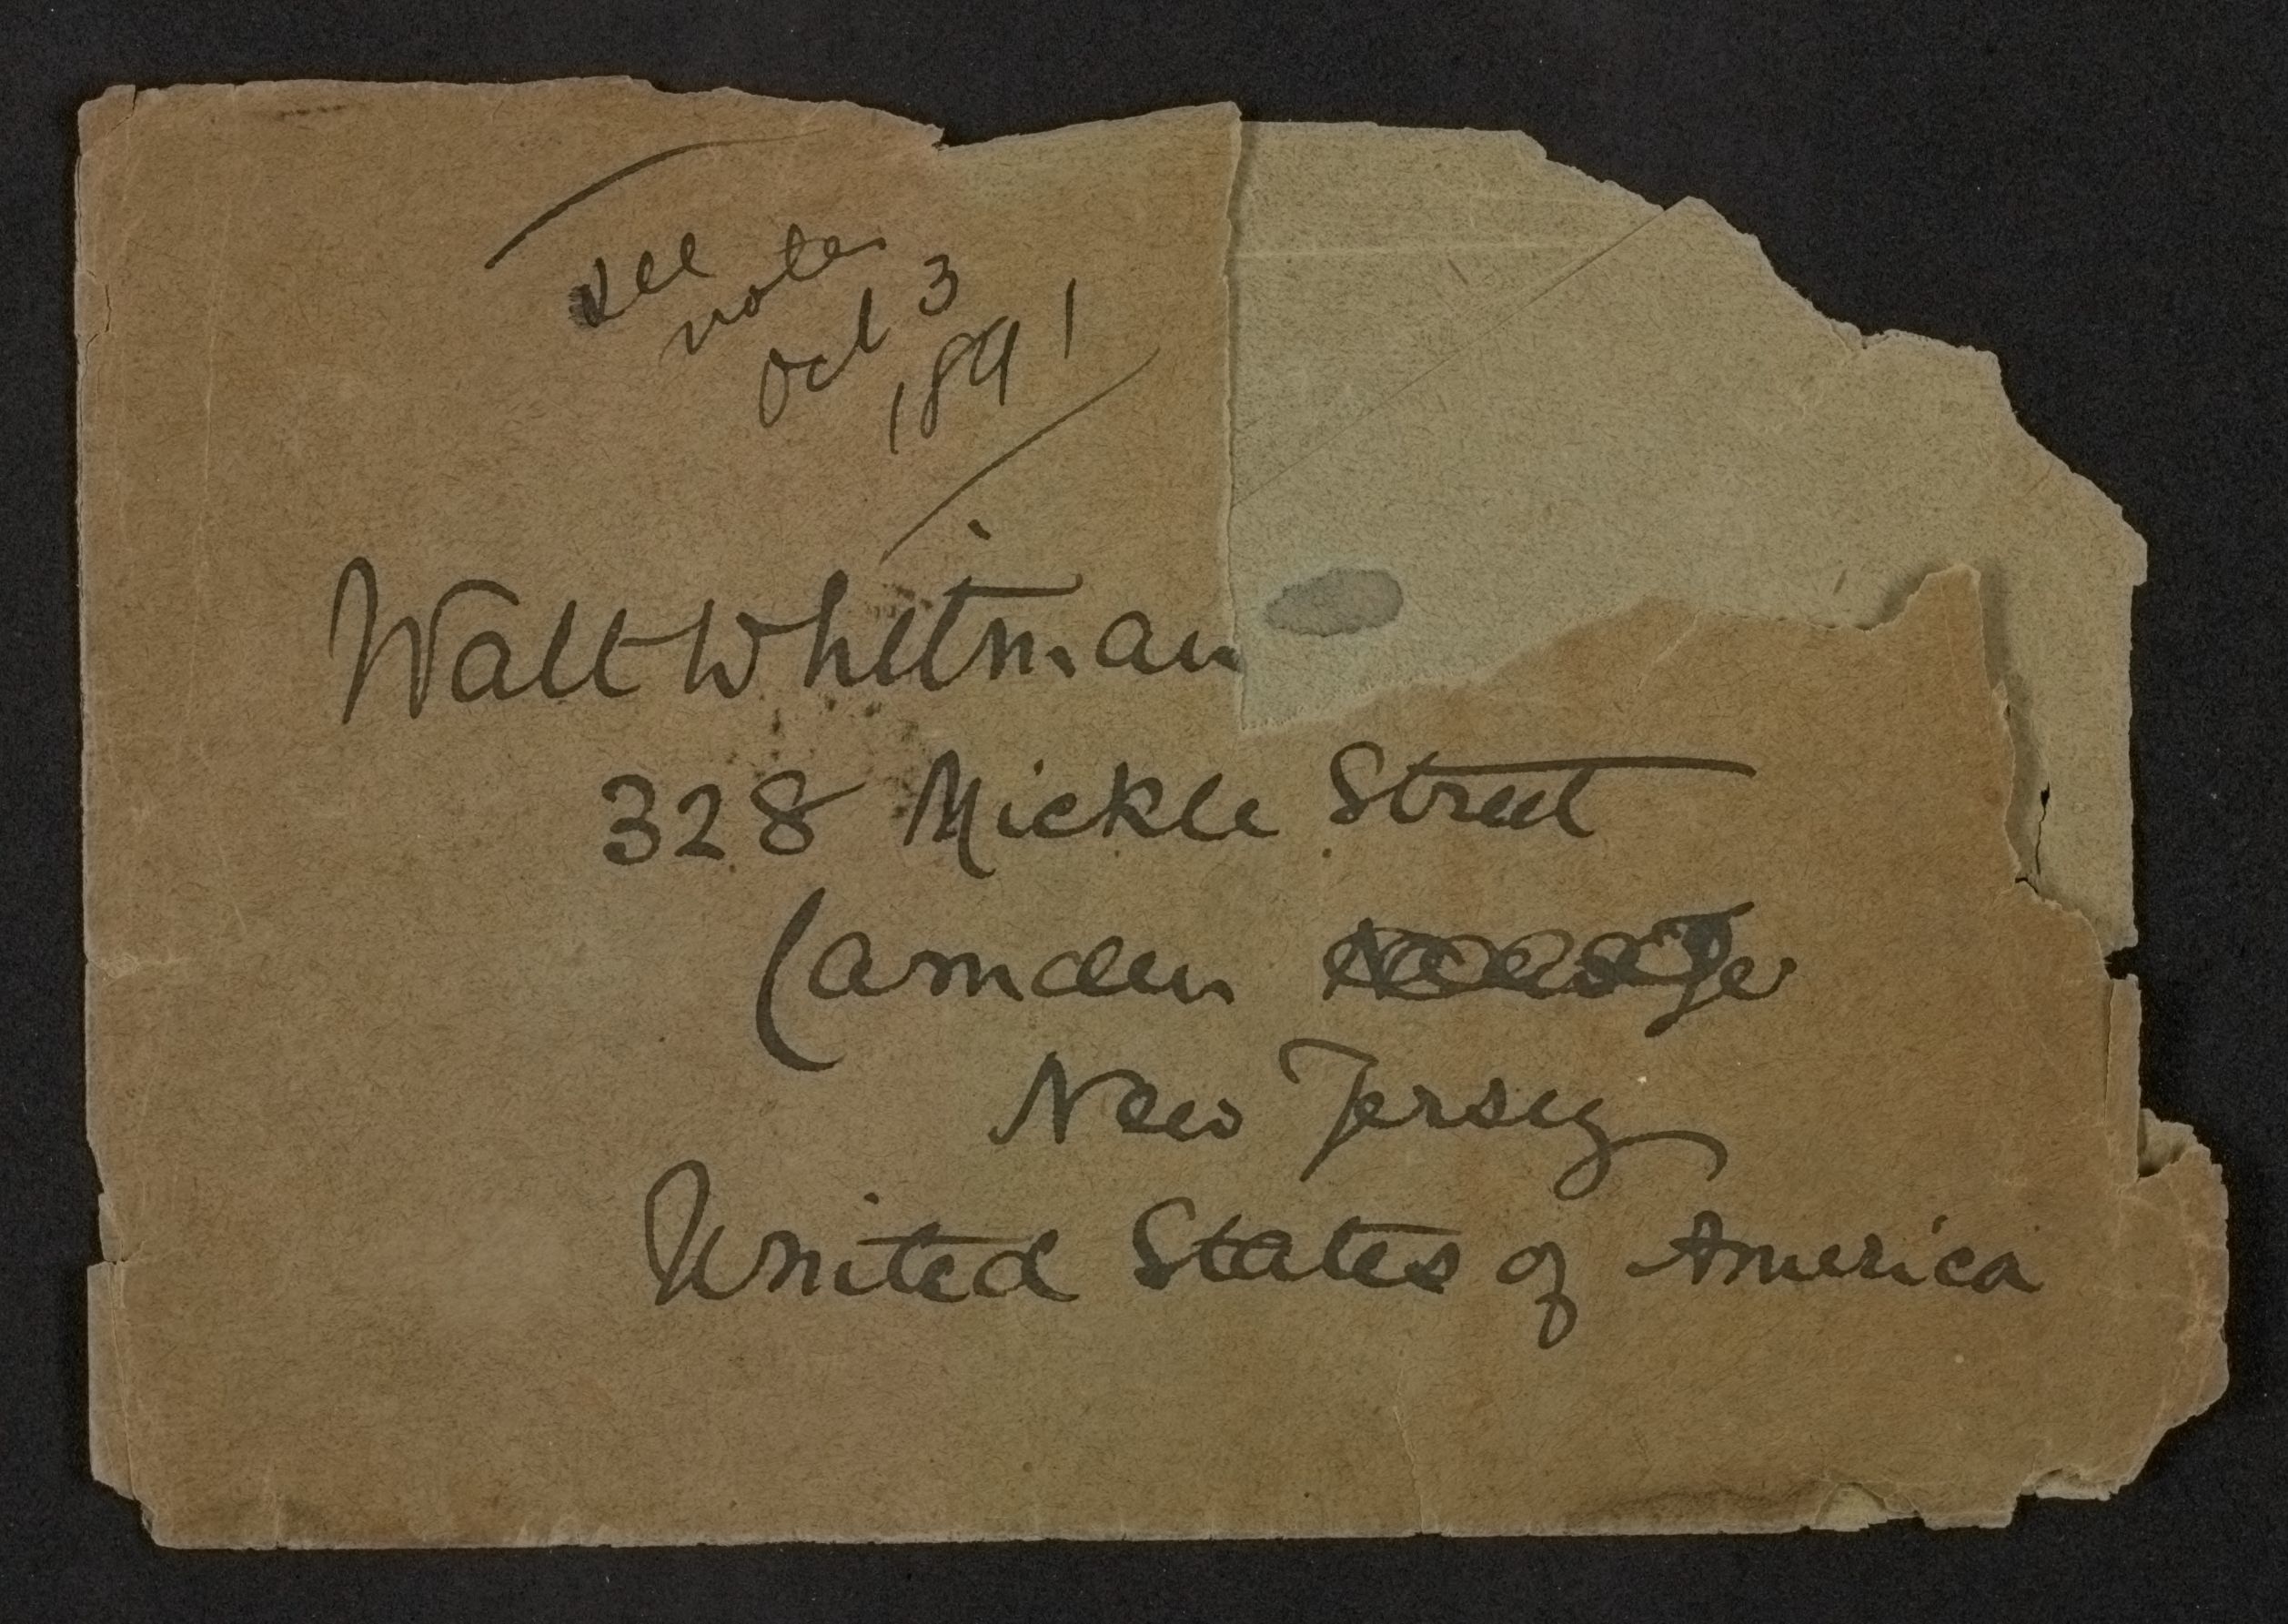 see
notes
Oct 3
1891
Walt Whitman
328 Mickle Street
Camden
New Jersey
United States of America